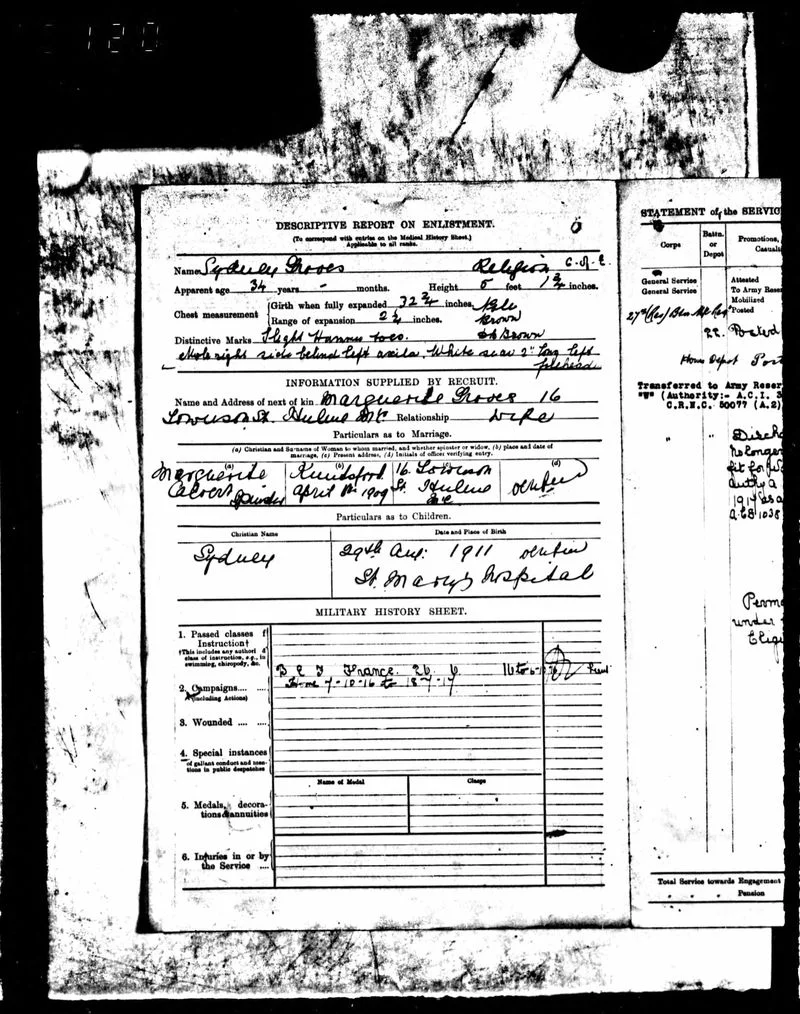 1 2 0
DESCRIPTIVE REPORT ON ENLISTMENT.
(To correspond with entries on the Medical History Sheet.)
Applicable to all ranks.
Name Sydney Groves Religion C. of E.
Apparent age 34 years - months. Height 5 feet 1 3/4 inches.
Chest measurement { Girth when fully expanded 32 3/4 inches.
Range of expansion 2 1/2 inches. Brown
Distinctive Marks Slight Hammer toes. Brown
Mole right side behind left axilla. White scar 2" long left
forehead
INFORMATION SUPPLIED BY RECRUIT.
Name and Address of next of kin Marguerite Groves 16
St. Hulme Relationship Wife
Particulars as to Marriage.
(a) Christian and Surname of Woman to whom married, and whether spinster or widow, (b) place and date of
marriage, (c) Present address, (d) Initials of officer verifying entry.
(a) (b) (d)
Marguerite Knutsford 16
Calvert Spinster April 1909 St. Hulme
Particulars as to Children.
Christian Name Date and Place of Birth
Sydney 29th Aug: 1911
St. Mary's Hospital
MILITARY HISTORY SHEET.
1. Passed classes
Instruction†
2. Campaigns.... ....
(including Actions)
B E F France. 26. 6 16 to 6-10-16
Home 7-10-16 to 18-7-17
3. Wounded .... ....
4. Special instances
of gallant conduct and men-
tions in public despatches
Name of Medal Clasps
5. Medals, decora-
tions & annuities
6. Injuries in or by
the Service ....
STATEMENT of the SERVIC
Corps Battn. or Depot Promotions, Casualt
General Service Attested
General Service To Army Rese
Mobilized
Posted
22. Posted
Home Depot Post
Transferred to Army Reser
"W" (Authority:- A.C.I. 3
C.R.N.C. 50077 (A.2)
" " Disch
no longer
fit for
Perma
under
Eligi
Total Service towards Engagement
" " " Pension